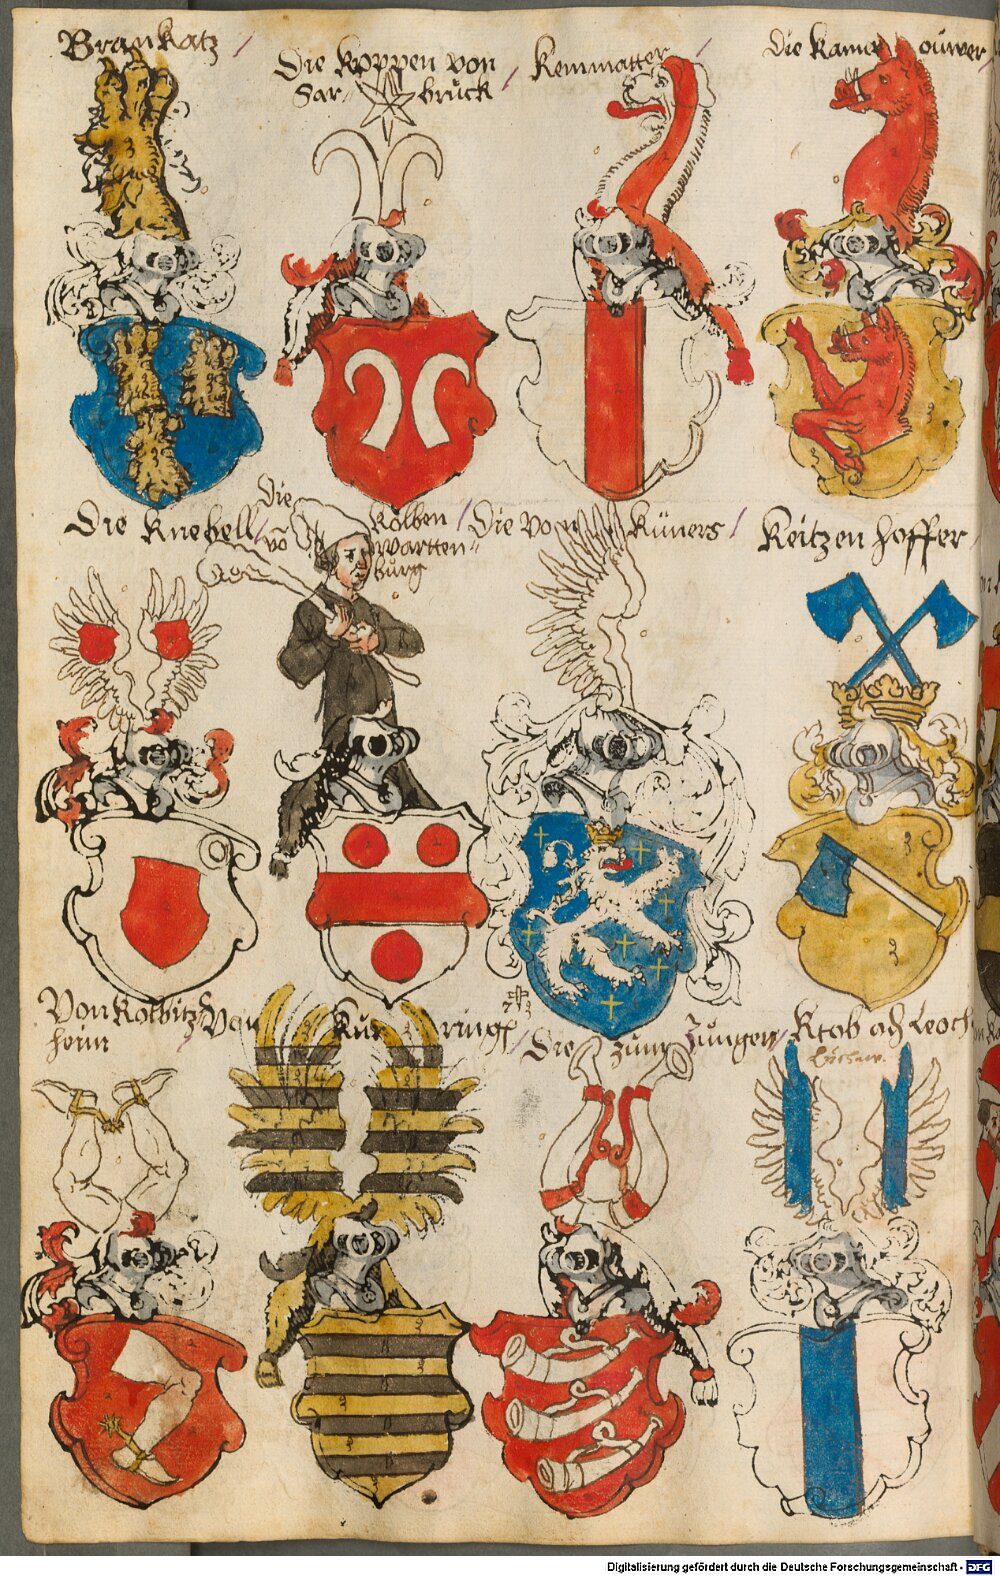 Brankatz /
Die Koppen von
Sar- bruck /
Kemmatter /
die Kame ouwer /
Die Knebell /
Die Kolben
vo Wartten-
burg
/ Die von Küners /
Keitzen hoffer /
Von Kolbitz
heim
Von Kür ring /
Die zum Jungen /
Krab och Leoch
Digitalisierung gefördert durch die Deutsche Forschungsgemeinschaft - DFG